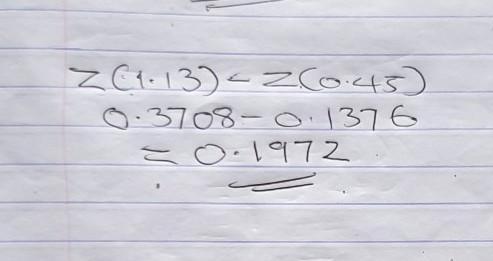 Z(1.13) - Z(0.45)
0.3708 - 0.1376
= 0.1972